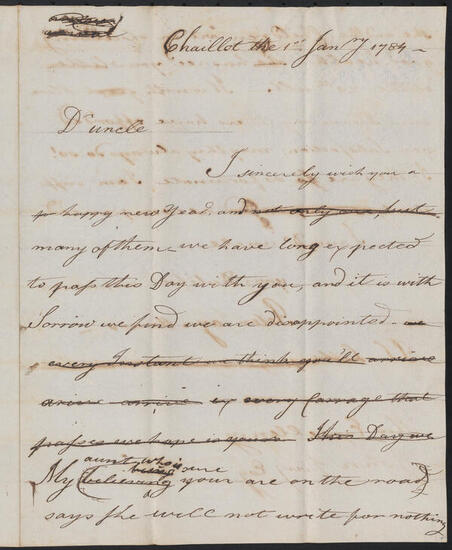 Chaillot the 1st Jany 1784
Dr uncle
I sincerely wish you a
happy new Year, and not only one, but
many of them we have long expected
to pass this Day with you, and it is with
Sorrow we find we are disappointed we
every Instant we think you'll arrive
arrive ex every Carrage that
passes we hope is yours This Day we
aunt who is
My believing your are on the road
says she will not write for nothing